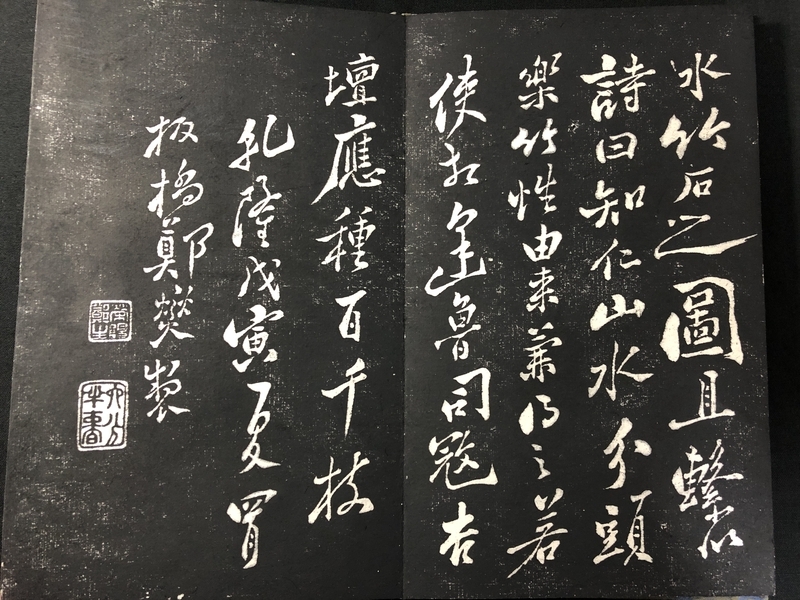 水竹石之圖且繫以
詩曰知仁山水分頭
樂竹性由来兼得之若
使相逢魯司寇杏
壇應種百千枝
乾隆戊寅夏
板橋鄭燮製
六分半書